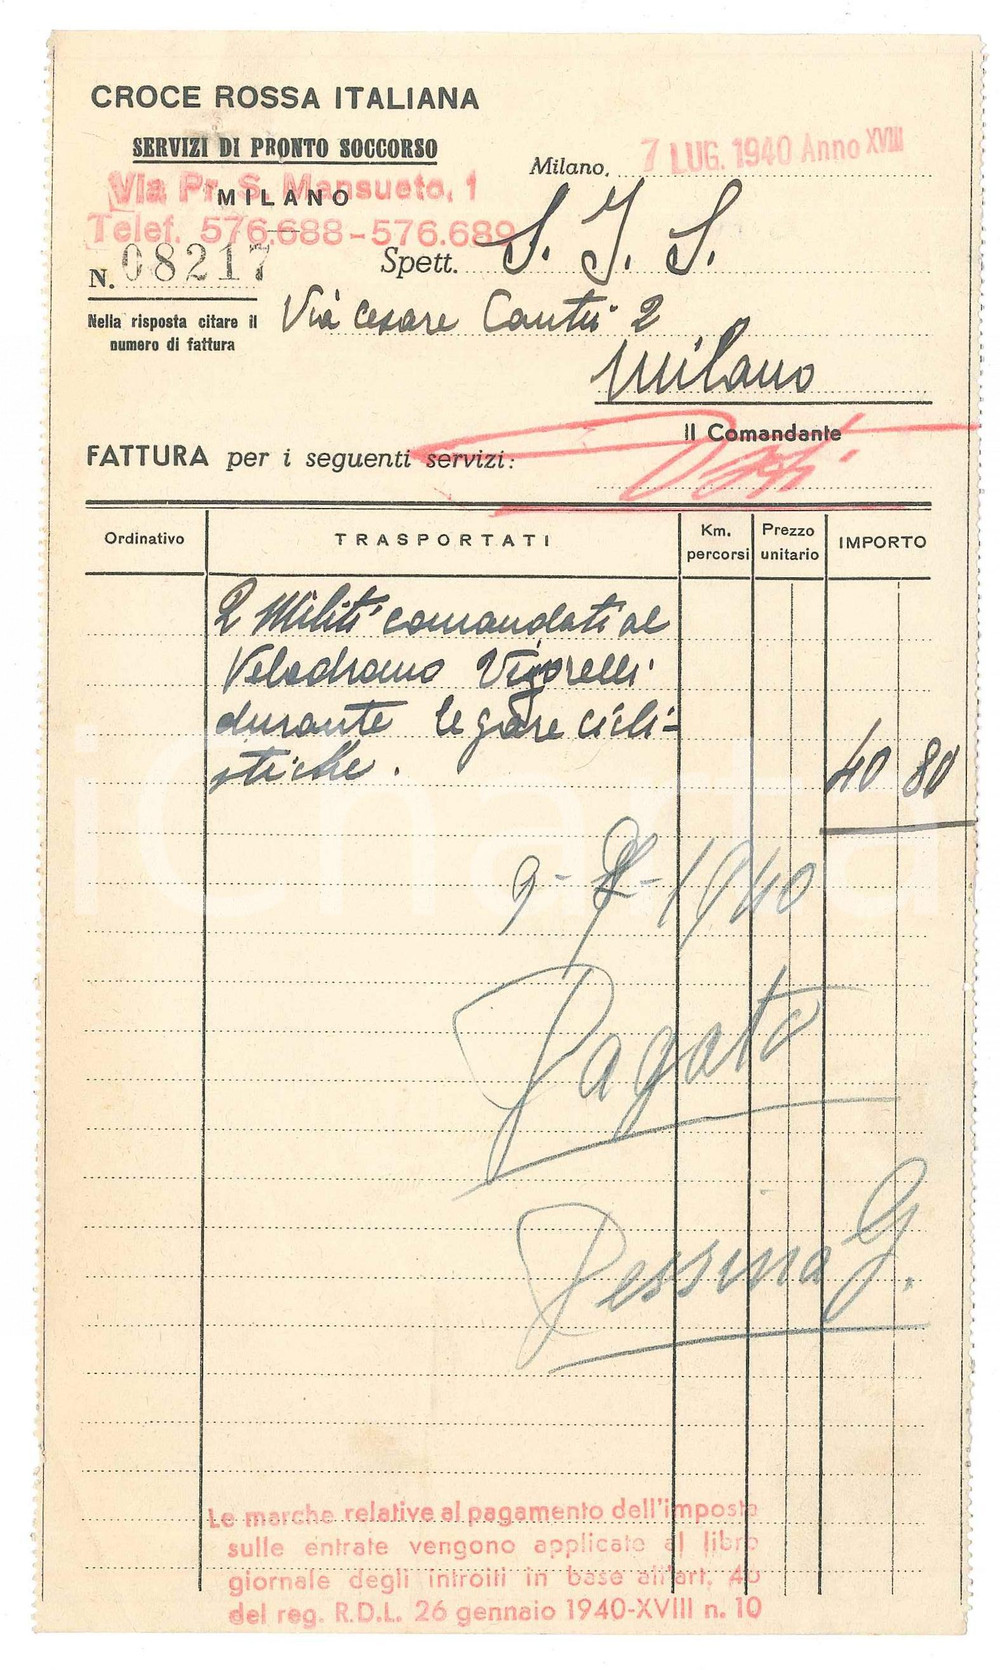 CROCE ROSSA ITALIANA
SERVIZI DI PRONTO SOCCORSO
Via Pr. S. Mansueto, 1
MILANO
Telef. 576.688 - 576.689
N. 08217
Nella risposta citare il
numero di fattura
Milano, 7 LUG. 1940 Anno XVIII
Spett. S. I. S.
Via Cesare Cantù 2
Milano
Il Comandante
FATTURA per i seguenti servizi:
Ordinativo TRASPORTATI Km. percorsi Prezzo unitario IMPORTO
2 Militi comandati al
Velodromo Vigorelli
durante le gare cicli-
stiche. 40 80
9 - - 1940
Pagato
Pessina G.
Le marche relative al pagamento dell'imposta
sulle entrate vengono applicate al libro
giornale degli introiti in base all'art. 40
del reg. R.D.L. 26 gennaio 1940-XVIII n. 10
iCharta